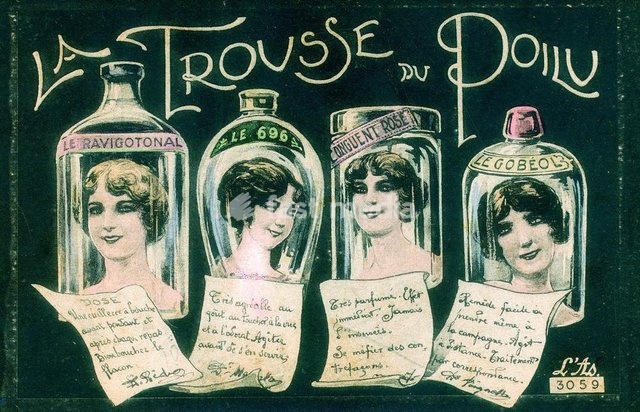 LA TROUSSE DU POILU
LE RAVIGOTONAL
LE 696
ONGUENT ROSE
LE GOBÉOL
DOSE
Une cuillerée à bouche
avant pendant et
après chaque repas
le flacon
Très agréable au
goût au toucher à la vue
et à l'odorat Agiter
avant de s'en servir
Très parfumé. Effet
immédiat. Jamais
l'mauvais.
Se méfier des con-
trefaçons.
Remède facile à
prendre même à
la campagne. Agit
à distance. Traitement
par correspondance.
L'As.
3059